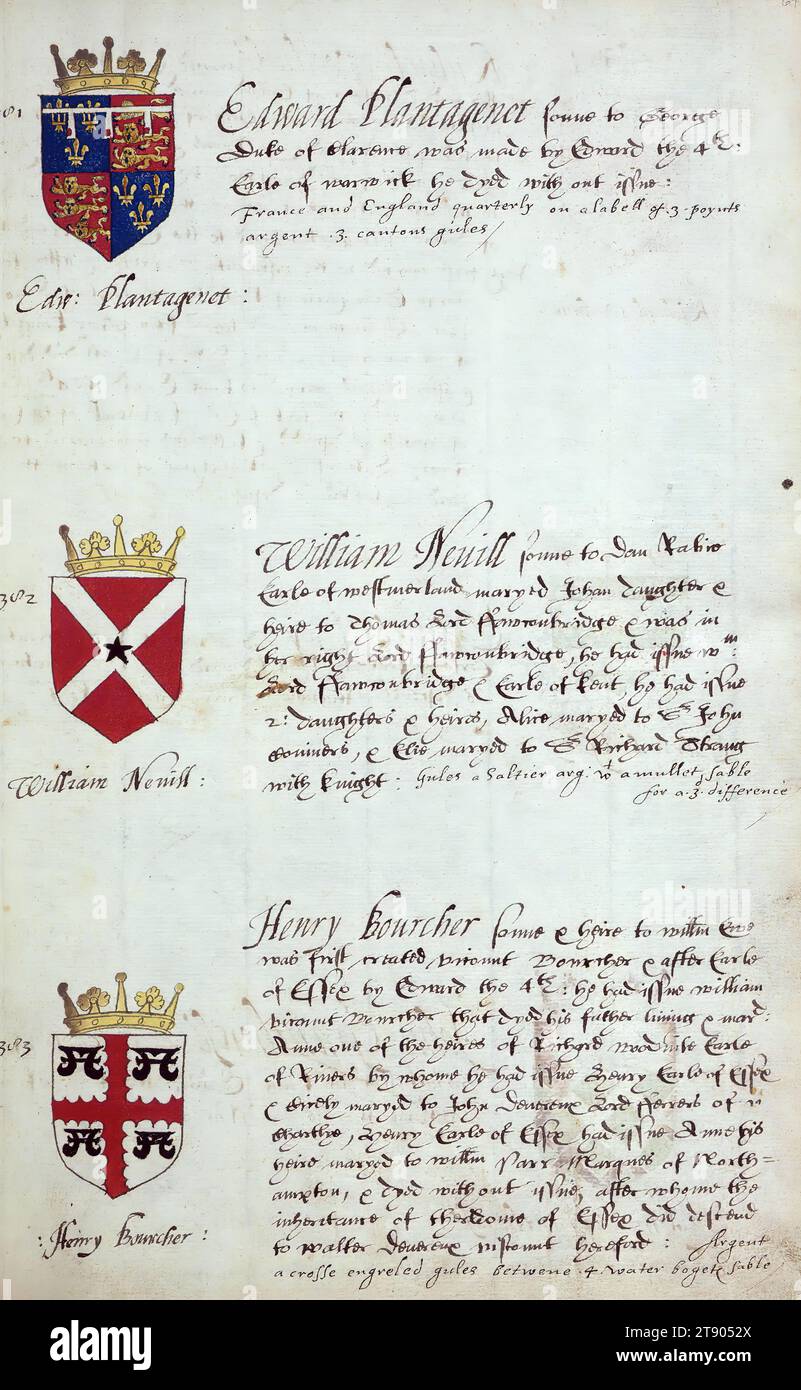 381
Edward Plantagenet sonne to George
Duke of Clarence was made by Edward the 4th:
Earle of warwick he dyed with out issue:
France and England quarterly on a labell of .3. poynts
argent .3. cantons gules
Edw: Plantagenet:
382
William Nevill sonne to Dan Rabie
Earle of westmerland maryed Johan daughter &
heire to Thomas Lord ffawconbridge & was in
her right Lord ffawconbridge, he had issue wm:
Lord ffawconbridge & Earle of Kent, he had issue
2: daughters & heires, Alice maryed to Sr John
Coniers, & Elie maryed to Sr Richard Strang
with knight: Gules a Saltier arg: wt a mullet, sable
for a .3. difference
William Nevill:
383
Henry Bourcher sonne & heire to willm Ewe
was first created vicount Bourcher & after Earle
of Essex by Edward the 4th: he had issue william
vicount Bourcher that dyed his father living & mard:
Anne one of the heires of Richard woodvile Earle
of Rivers by whome he had issue Henry Earle of Essex
& Cicely maryed to John Devereux Lord fferrers of
Chartley, Henry Earle of Essex had issue Anne his
heire maryed to willm Parr Marques of North=
ampton, & dyed without issue, after whome the
inheritance of therldome of Essex did descend
to walter Devereux viscount hereford: Argent
a crosse engreled gules betwene .4. water bogets sable
:Henry Bourcher:
alamy
Image ID: 2T9052X
www.alamy.com